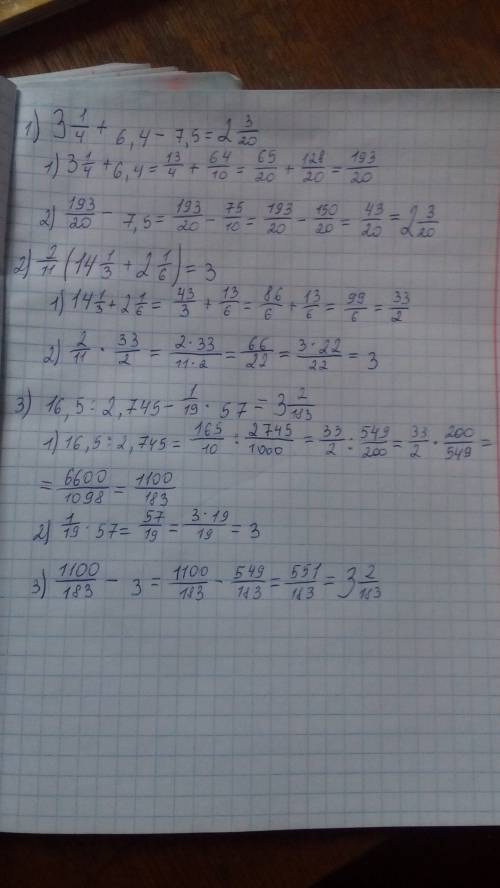 1) 3 1/4 + 6,4 - 7,5 = 2 3/20
1) 3 1/4 + 6,4 = 13/4 + 64/10 = 65/20 + 128/20 = 193/20
2) 193/20 - 7,5 = 193/20 - 75/10 = 193/20 - 150/20 = 43/20 = 2 3/20
2) 2/11 (14 1/3 + 2 1/6) = 3
1) 14 1/3 + 2 1/6 = 43/3 + 13/6 = 86/6 + 13/6 = 99/6 = 33/2
2) 2/11 · 33/2 = 2·33/11·2 = 66/22 = 3·22/22 = 3
3) 16,5 : 2,745 - 1/19 · 57 = 3 2/183
1) 16,5 : 2,745 = 165/10 : 2745/1000 = 33/2 : 549/200 = 33/2 · 200/549 =
= 6600/1098 = 1100/183
2) 1/19 · 57 = 57/19 = 3·19/19 = 3
3) 1100/183 - 3 = 1100/183 - 549/183 = 551/183 = 3 2/183